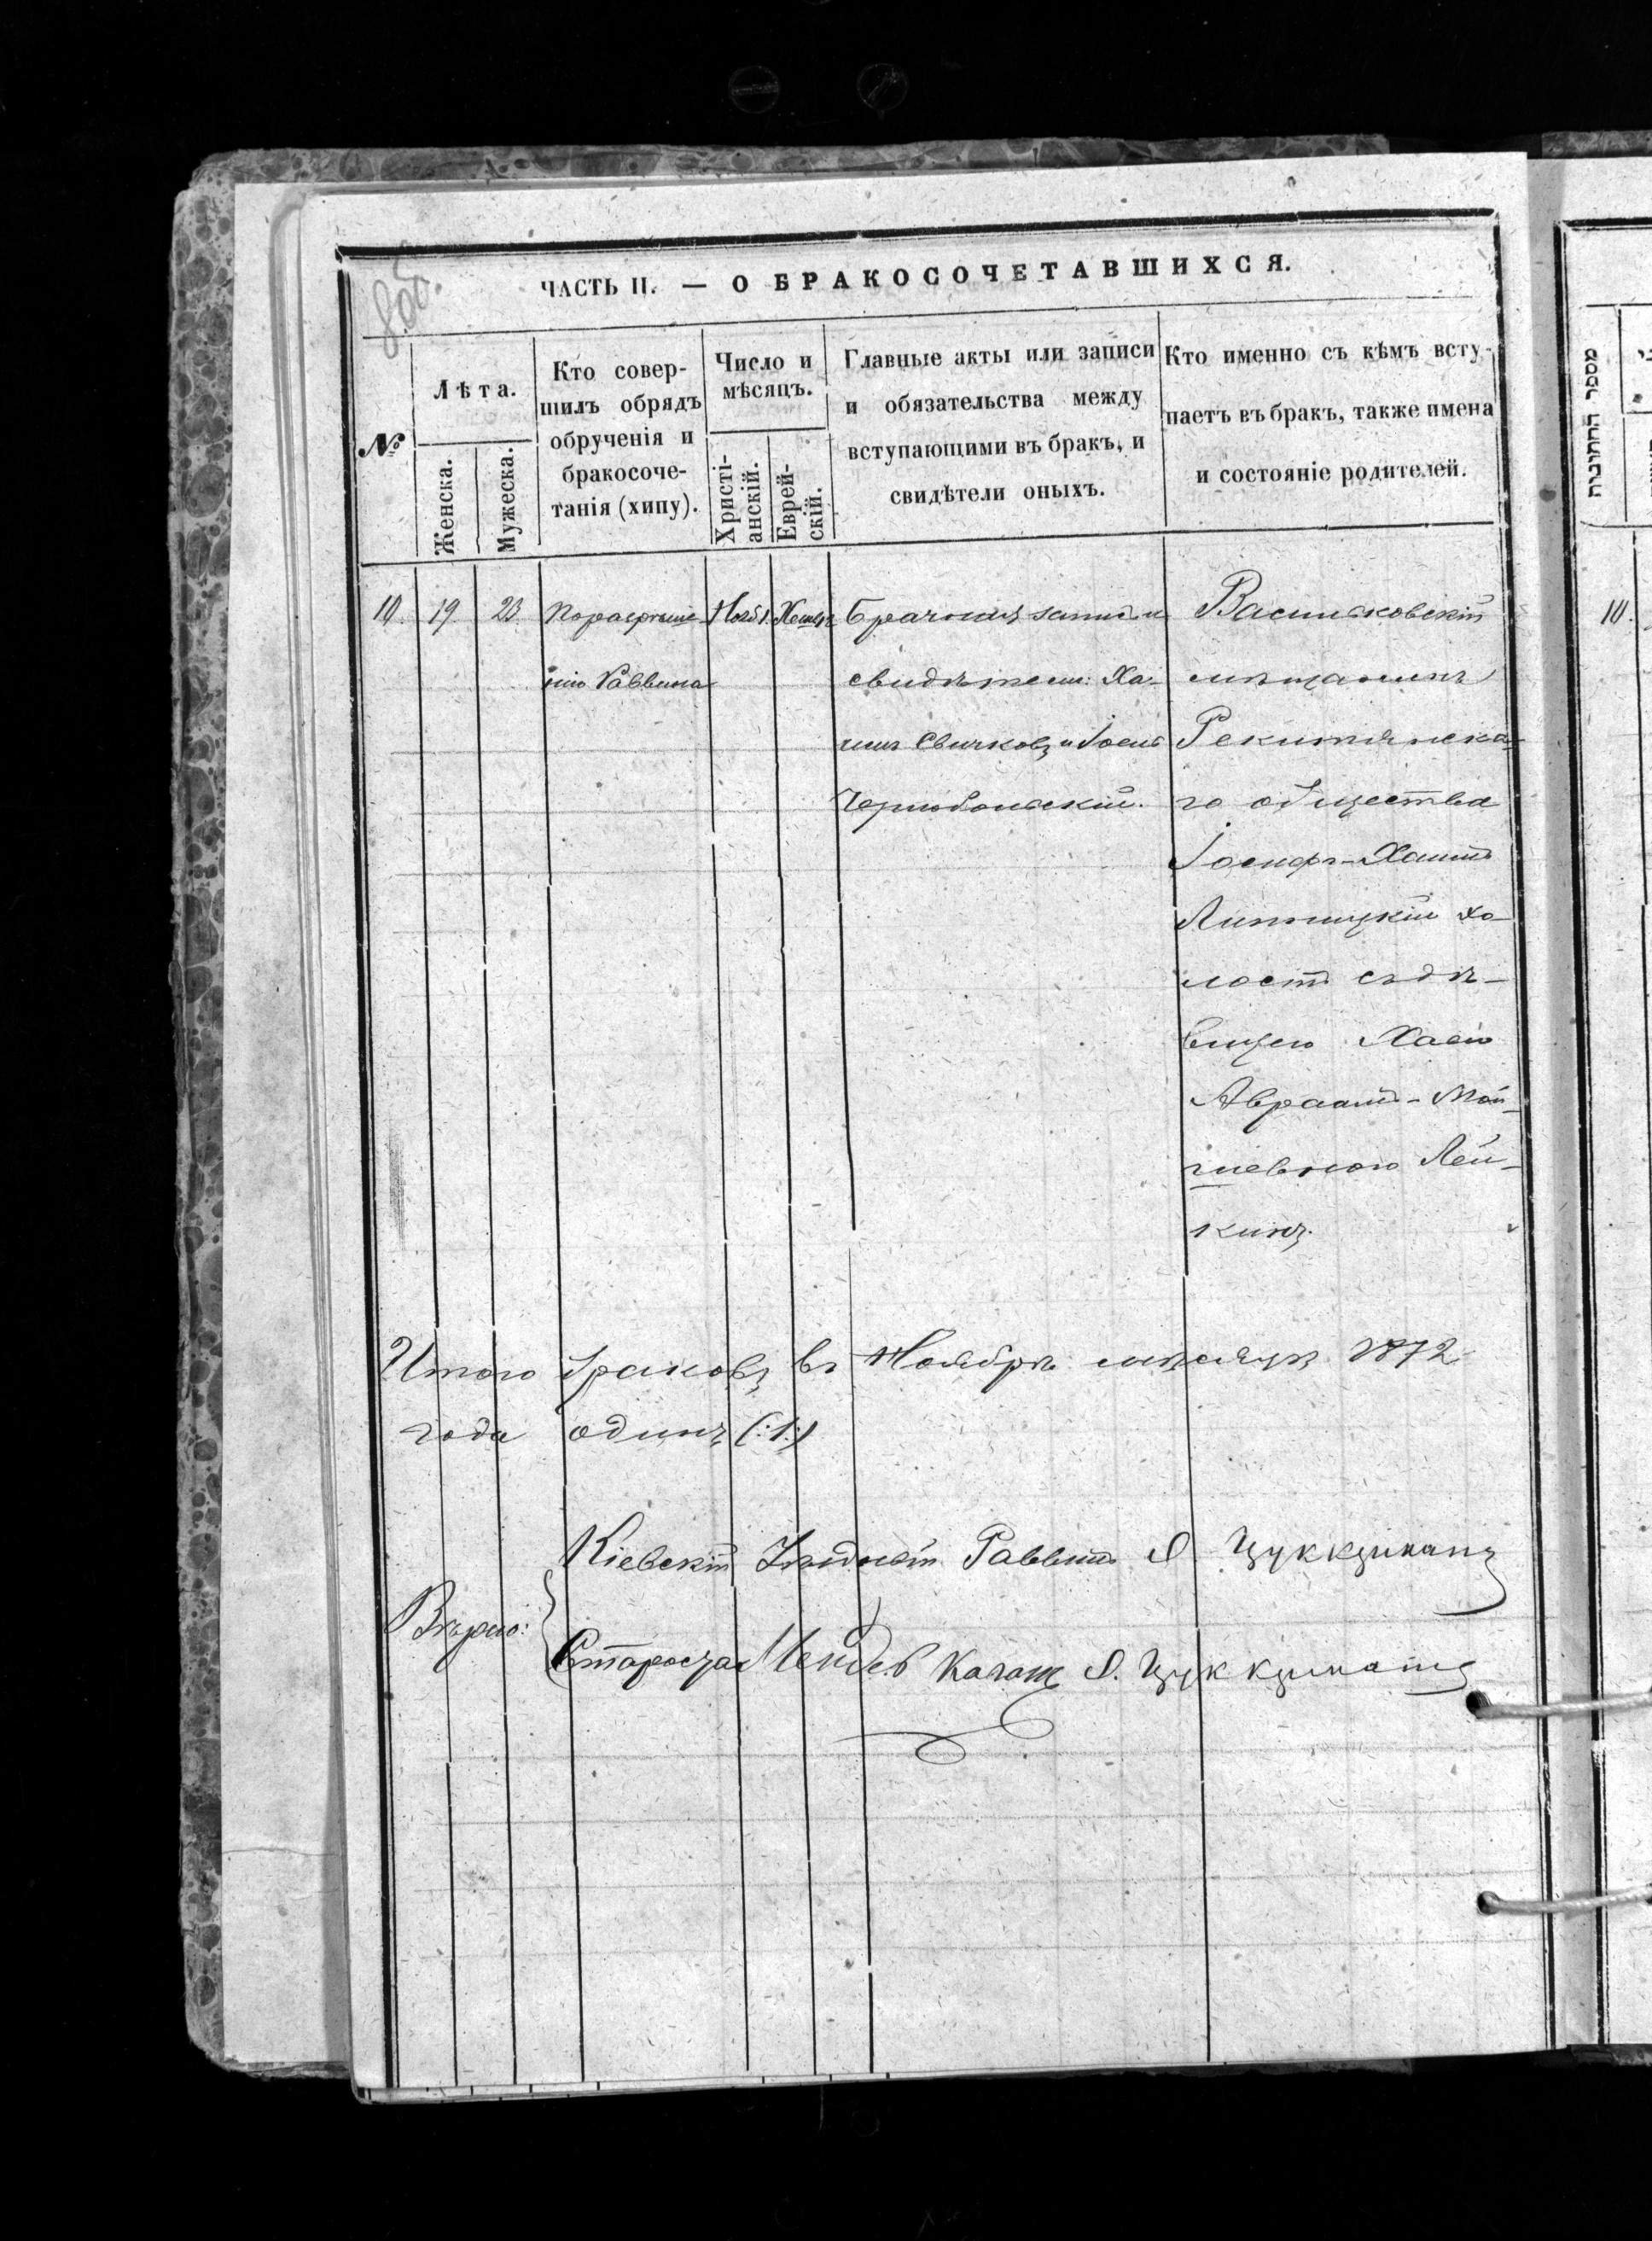 ЧАСТЬ II. — О БРАКОСОЧЕТАВШИХСЯ.
№
Лѣта.
Женска.
Мужеска.
Кто совер-
шилъ обрядъ
обрученія и
бракосоче-
танія (хипу).
Число и
мѣсяцъ.
Христі-
анскій.
Еврей-
скій.
Главные акты или записи
и обязательства между
вступающими въ бракъ, и
свидѣтели оныхъ.
Кто именно съ кѣмъ всту-
паетъ въ бракъ, также имена
и состояніе родителей.
10. 19. 23.
По разрѣше-
нію Раввина
Нояб 1.
Брачная запись и
свидѣтели: Ха-
имъ Свичковъ и Іосъ
Чернобыльскій.
Васильковскій
мѣщанинъ
Рекитянска-
го общества
Іосифъ-Хаимъ
Липницкій хо-
лостъ съ дѣ-
вицею Хаею
Авраамъ-Мой-
шевною Лей-
кинъ.
Итого браковъ въ Ноябрѣ мѣсяцѣ 1872
года одинъ (:1:)
Кіевскій Уѣздный Раввинъ Я Цуккерманъ
Вѣрно:
Староста Мендев Каган Я. Цуккерманъ
מספר החתונות
10.